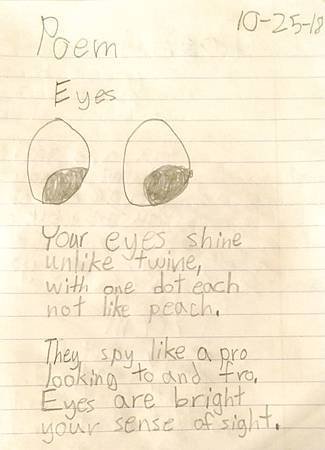 10-25-18
Poem
Eyes
Your eyes shine
unlike twine,
with one dot each
not like peach.
They spy like a pro
looking to and fro.
Eyes are bright
your sense of sight.